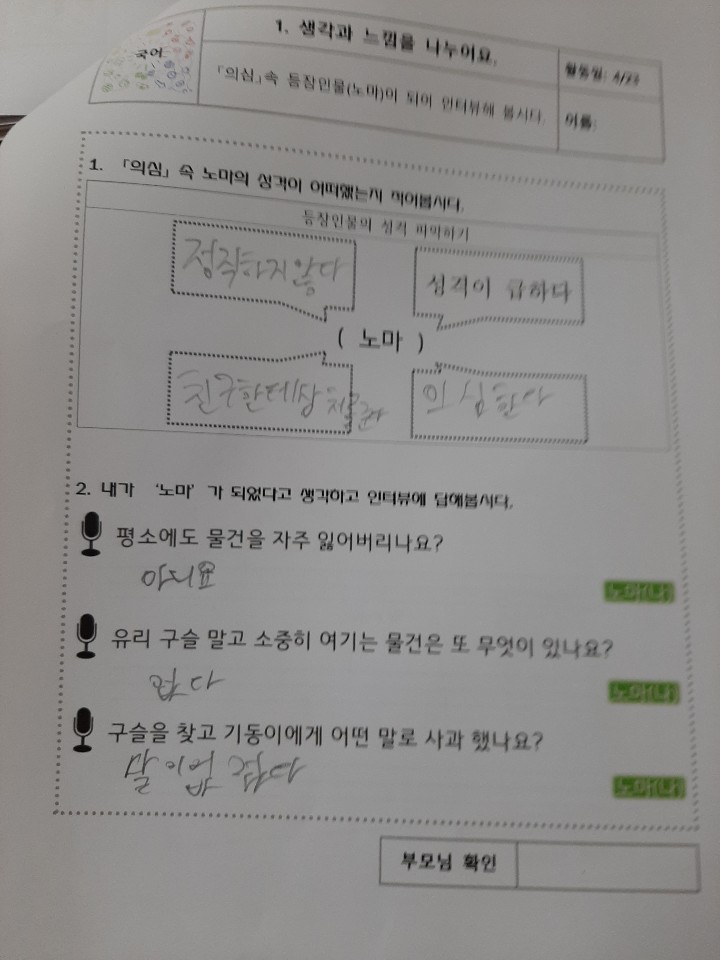 국어
1. 생각과 느낌을 나누어요.
「의심」속 등장인물(노마)이 되어 인터뷰해 봅시다.
활동일: 4/23
이름:
1. 「의심」 속 노마의 성격이 어떠했는지 적어봅시다.
등장인물의 성격 파악하기
정직하지않다
성격이 급하다
( 노마 )
친구한테상처를준다
의심한다
2. 내가 '노마'가 되었다고 생각하고 인터뷰에 답해봅시다.
평소에도 물건을 자주 잃어버리나요?
아니요
노마(나)
유리 구슬 말고 소중히 여기는 물건은 또 무엇이 있나요?
없다
노마(나)
구슬을 찾고 기동이에게 어떤 말로 사과 했나요?
말이없었다
노마(나)
부모님 확인